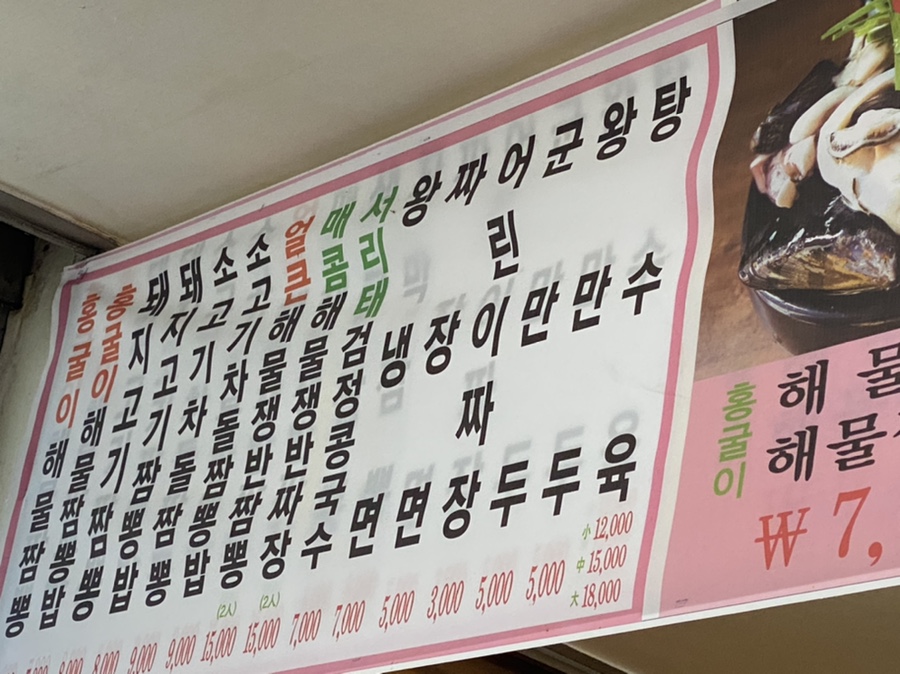 홍굴이 해물짬뽕
홍굴이 해물짬뽕밥
돼지고기짬뽕 8,000
돼지고기짬뽕밥 8,000
소고기차돌짬뽕 9,000
소고기차돌짬뽕밥 9,000
얼큰해물쟁반짬뽕 (2人) 15,000
매콤해물쟁반짜장 (2人) 15,000
서리태검정콩국수 7,000
왕냉면 7,000
짜장면 5,000
어린이짜장 3,000
군만두 5,000
왕만두 5,000
탕수육 小 12,000
中 15,000
大 18,000
홍굴이
해물
해물
₩7,